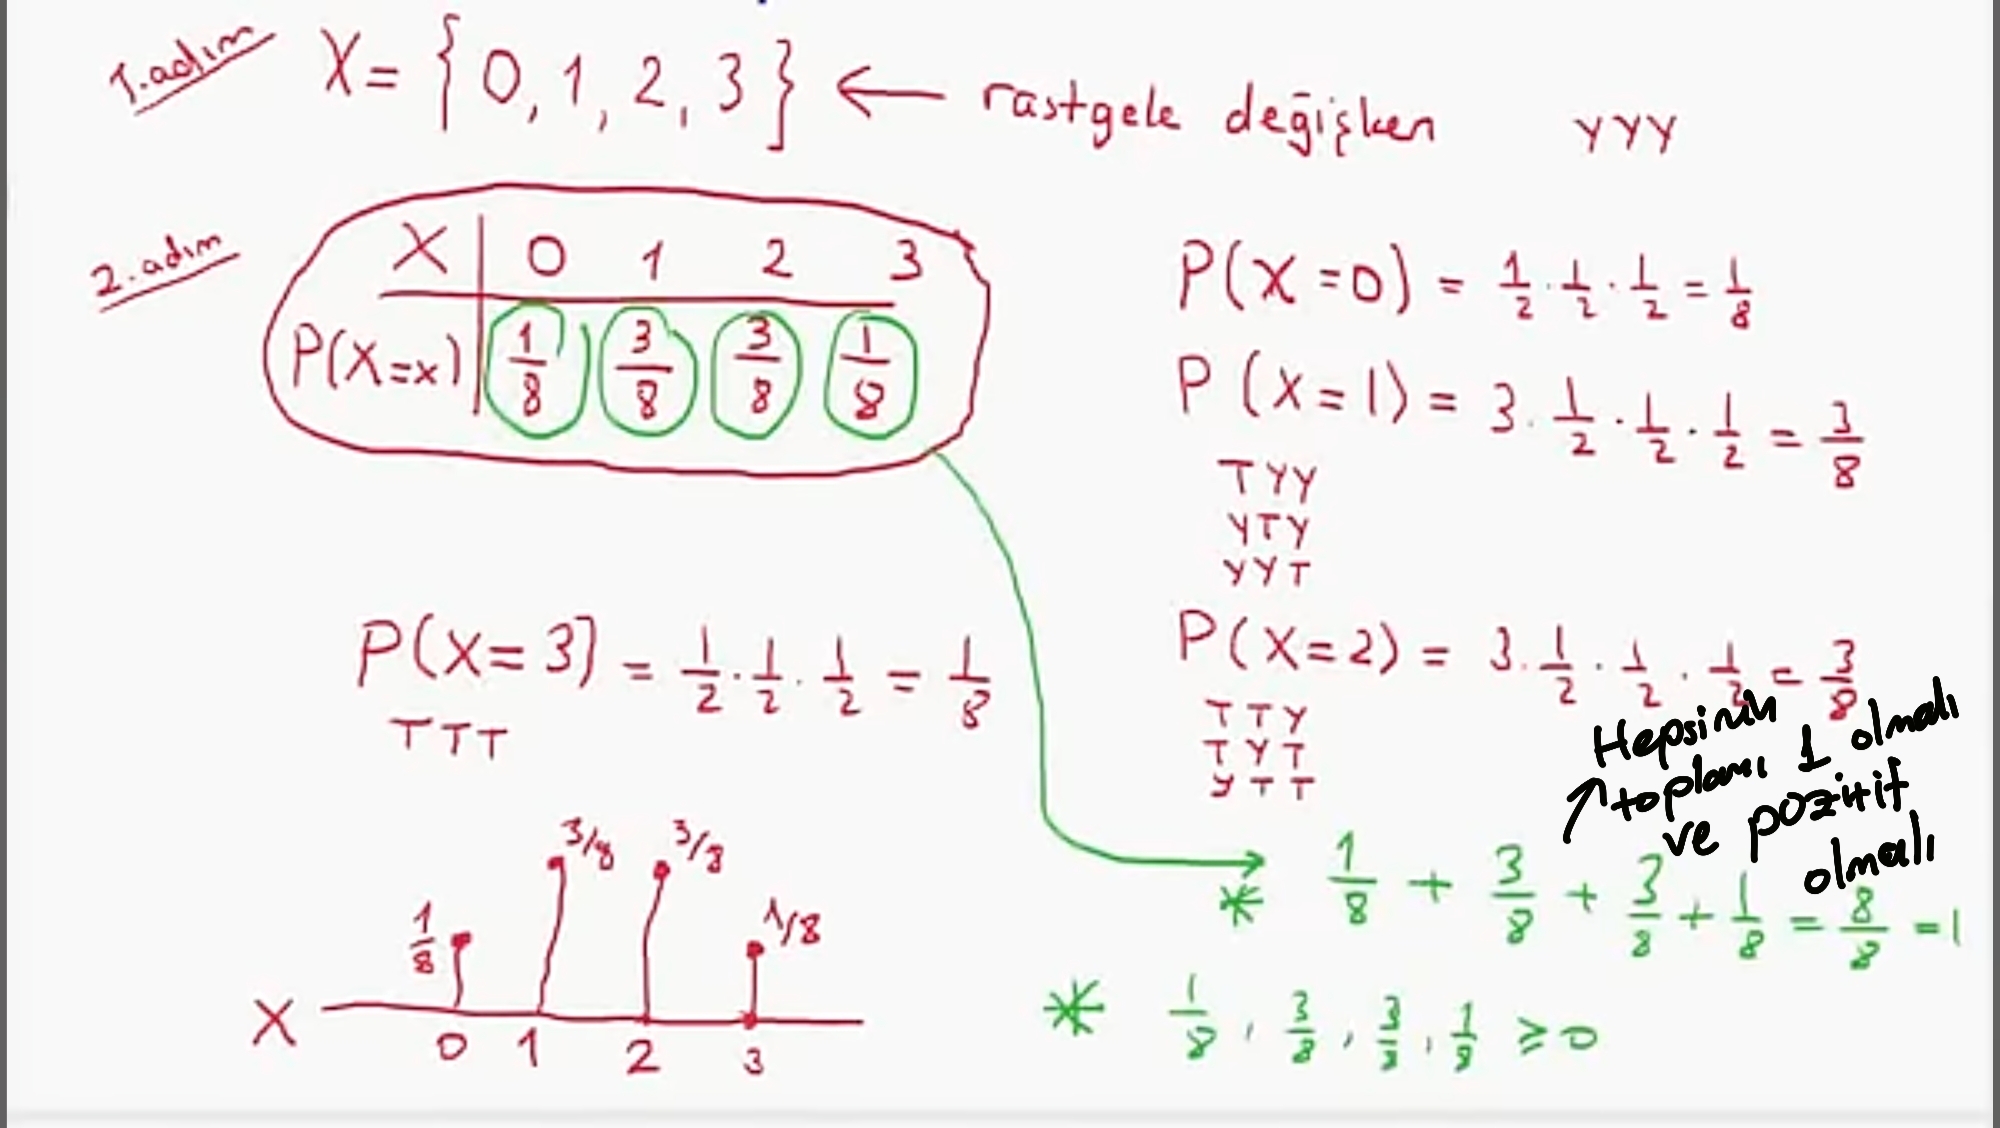 1.adım X = { 0, 1, 2, 3 } ← rastgele değişken YYY
2.adım
X | 0 1 2 3
P(X=x) | 1/8 3/8 3/8 1/8
P(X=0) = 1/2 . 1/2 . 1/2 = 1/8
P(X=1) = 3 . 1/2 . 1/2 . 1/2 = 3/8
TYY
YTY
YYT
P(X=2) = 3 . 1/2 . 1/2 . 1/2 = 3/8
TTY
TYT
YTT
P(X=3) = 1/2 . 1/2 . 1/2 = 1/8
TTT
Hepsinin
toplamı 1 olmalı
ve pozitif
olmalı
* 1/8 + 3/8 + 3/8 + 1/8 = 8/8 = 1
* 1/8 , 3/8 , 3/8 , 1/8 ≥ 0
1/8 3/8 3/8 1/8
X 0 1 2 3